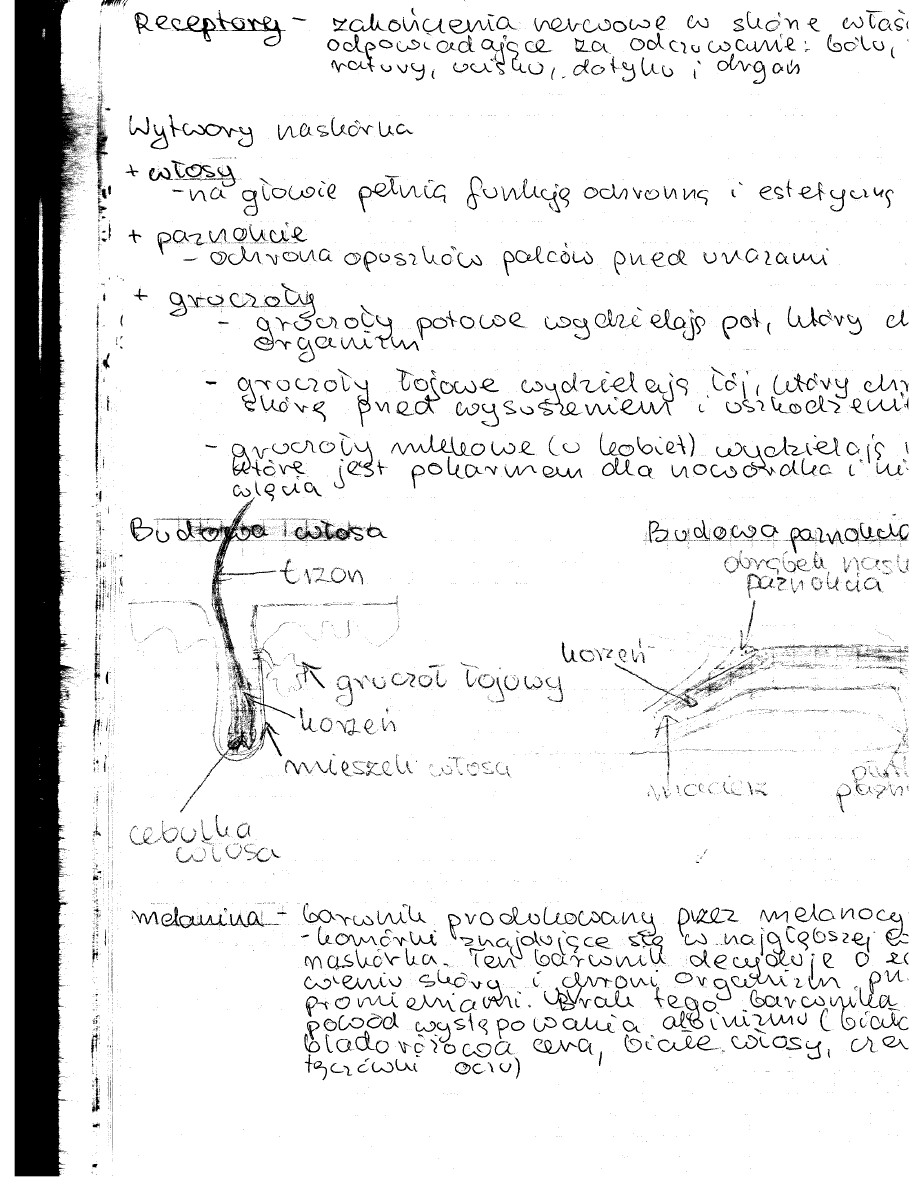 Receptory - zakończenia nerwowe w skórze właś
odpowiadające za odczuwanie: bólu,
ratury, ucisku, dotyku i drgań
Wytwory naskórka
+ włosy
- na głowie pełnią funkcję ochronną i estetyczną
+ paznokcie
- ochrona opuszków palców przed urazami
+ gruczoły
- gruczoły potowe wydzielają pot, który ch
organizm
- gruczoły łojowe wydzielają łój, który chr
skórę przed wysuszeniem i uszkodzeni
- gruczoły mlekowe (u kobiet) wydzielają
które jest pokarmem dla noworodka i ni
wlęcia
Budowa włosa
Budowa paznokcia
obrąbek nask
paznokcia
trzon
korzeń
gruczoł łojowy
korzeń
mieszek włosa
macierz
płyt
pazn
cebulka
włosa
melanina - barwnik produkowany przez melanocy
- komórki znajdujące się w najgłębszej
naskórka. Ten barwnik decyduje o
wieniu skóry i chroni organizm prz
promieniami. Brak tego barwnika
powód występowania albinizmu (biała
bladoróżowa cera, białe włosy, czer
tęczówki oczu)